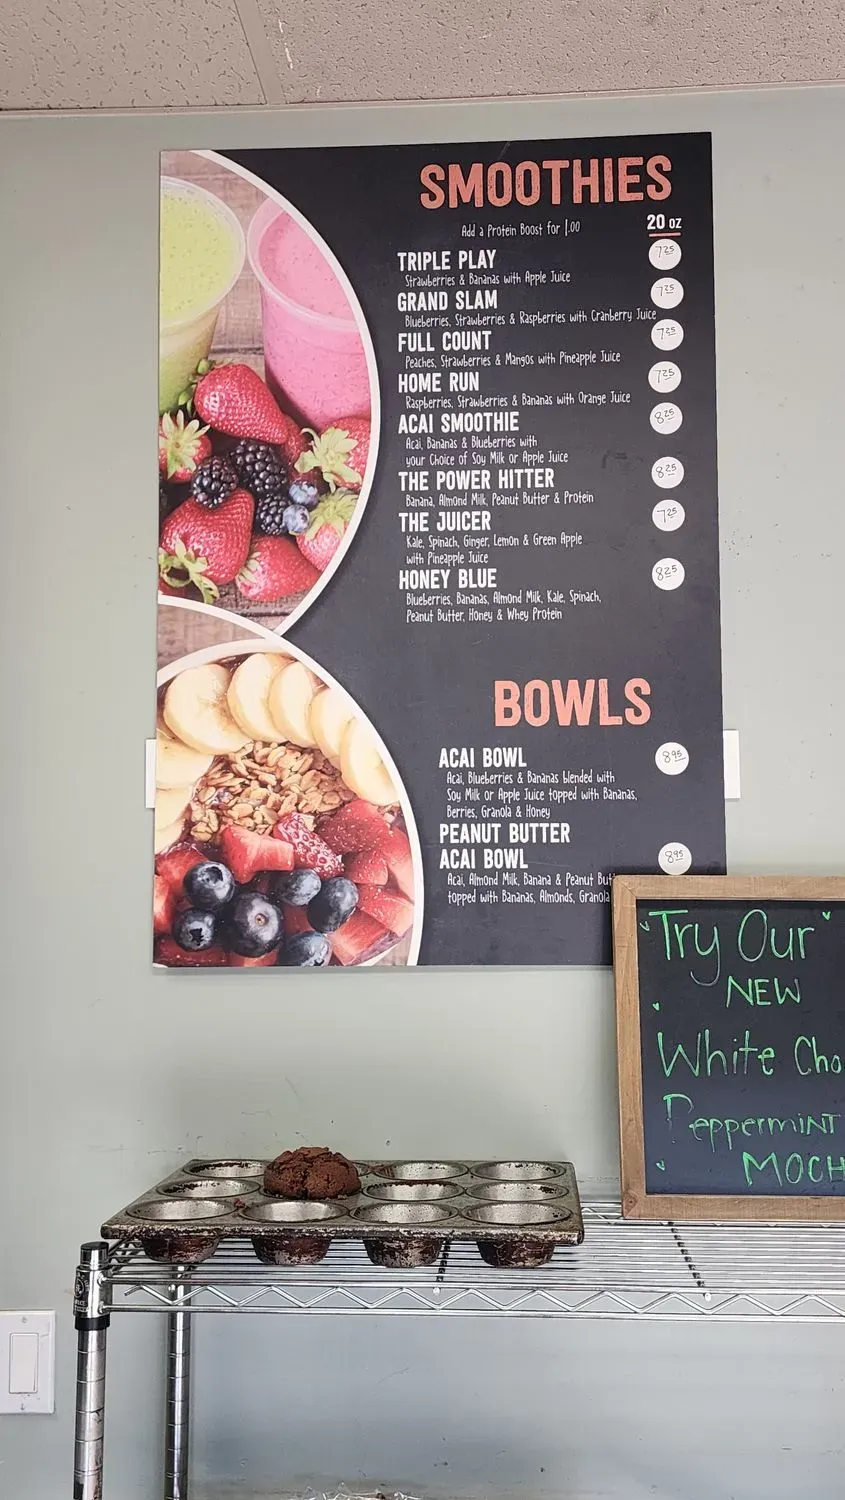 SMOOTHIES
Add a Protein Boost for 1.00
20 OZ
TRIPLE PLAY 7.25
Strawberries & Bananas with Apple Juice
GRAND SLAM 7.25
Blueberries, Strawberries & Raspberries with Cranberry Juice
FULL COUNT 7.25
Peaches, Strawberries & Mangos with Pineapple Juice
HOME RUN 7.25
Raspberries, Strawberries & Bananas with Orange Juice
ACAI SMOOTHIE 8.25
Acai, Bananas & Blueberries with
your Choice of Soy Milk or Apple Juice
THE POWER HITTER 8.25
Banana, Almond Milk, Peanut Butter & Protein
THE JUICER 7.25
Kale, Spinach, Ginger, Lemon & Green Apple
with Pineapple Juice
HONEY BLUE 8.25
Blueberries, Bananas, Almond Milk, Kale, Spinach,
Peanut Butter, Honey & Whey Protein
BOWLS
ACAI BOWL 8.95
Acai, Blueberries & Bananas blended with
Soy Milk or Apple Juice topped with Bananas,
Berries, Granola & Honey
PEANUT BUTTER
ACAI BOWL 8.95
Acai, Almond Milk, Banana & Peanut But
topped with Bananas, Almonds, Granola
Try Our
NEW
White Cho
Peppermint
MOCH